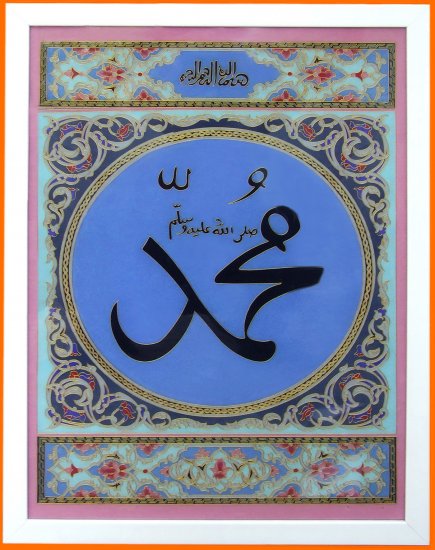 بسم الله الرحمن الرحيم
مُحمَّد
صلى الله عليه وسلّم